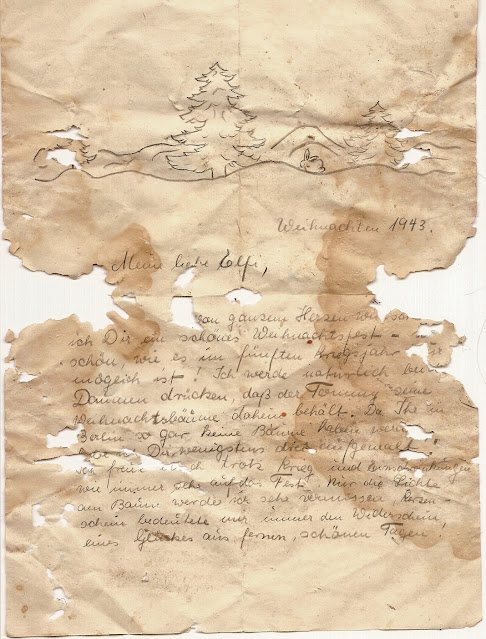 Weihnachten 1943.
Meine liebe Elfi,
von ganzem Herzen wünsche
ich Dir ein schönes Weihnachtsfest – so
schön, wie es im fünften Kriegsjahr
möglich ist! Ich werde natürlich beide
Daumen drücken, daß der Tommy seine
Weihnachtsbäume daheim behält. Da Ihr in
Berlin so gar keine Bäume haben werdet,
Du wenigstens aufgemalt!
Ich freue mich trotz Krieg und Einschränkungen
wie immer sehr auf das Fest. Nur die Lichte
am Baum werde ich sehr vermissen, Kerzen-
schein bedeutete mir immer den Widerschein,
eines Glückes aus fernen, schönen Tagen.